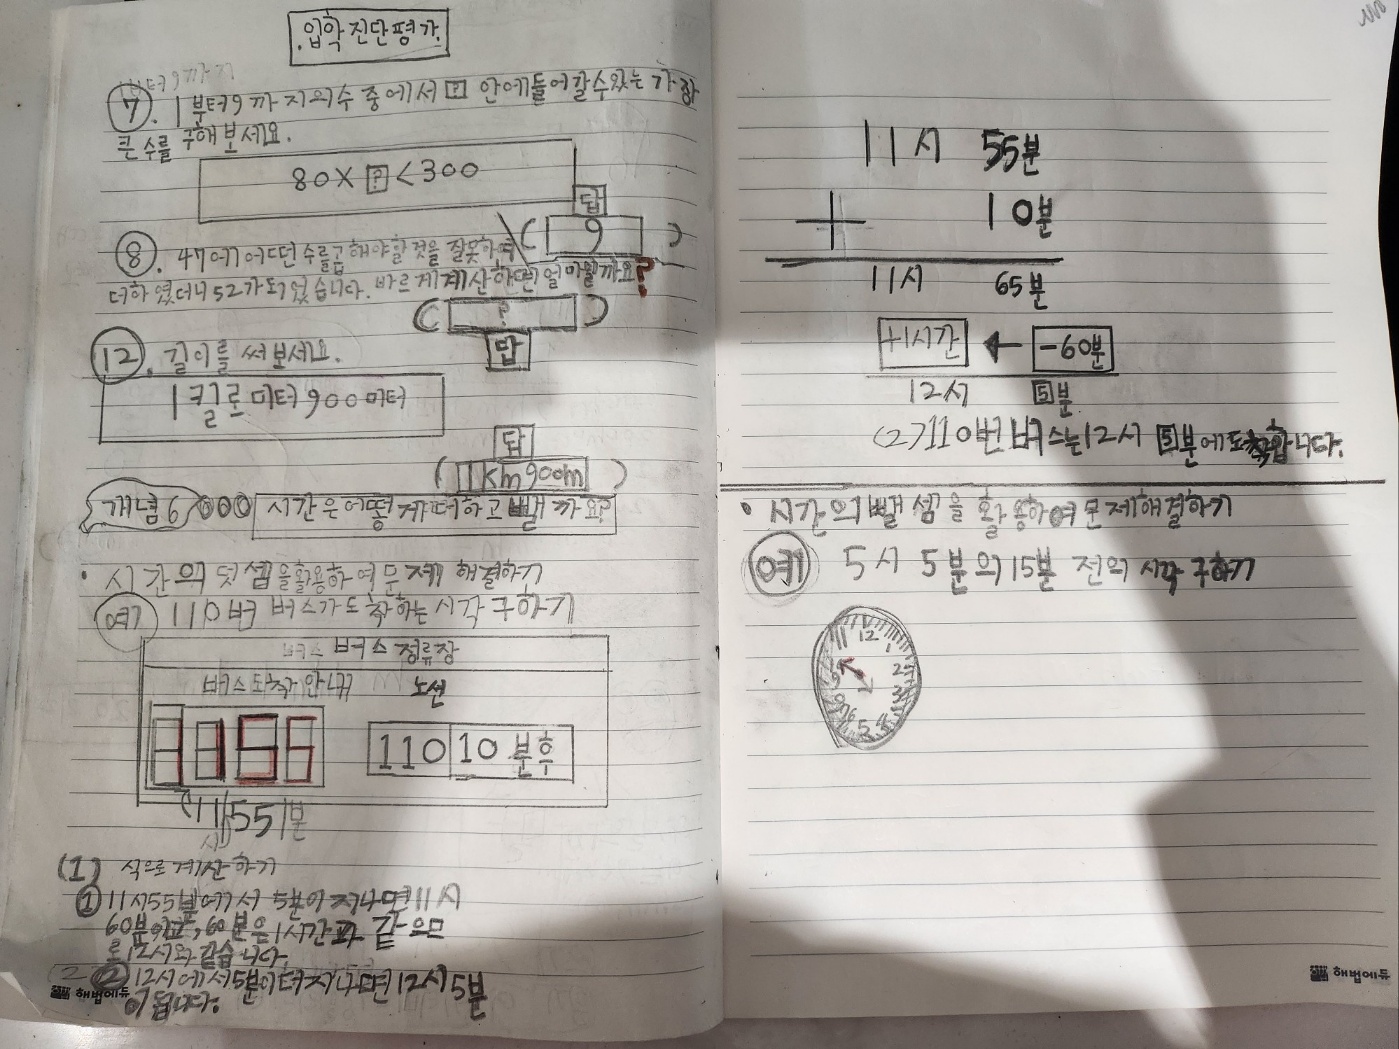 입학 진단평가.
부터9까지
⑦. 1부터9까지의수 중에서 ? 안에들어갈수있는 가장
큰 수를 구해 보세요.
80X ? <300
답
( 9 )
⑧. 47에 어떤 수를곱해야할것을 잘못하여
더하였더니 52가되었습니다. 바르게계산하면얼마일까요?
( ? )
답
⑫. 길이를 써 보세요.
1킬로미터900미터
답
( 1km900m )
개념6 000 시간은어떻게더하고뺄까요?
• 시간의 덧셈을활용하여문제해결하기
예 110번 버스가도착하는시각구하기
버스 버스 정류장
버스도착안내 노선
1155 110 10분후
(11 55 분
시
(1) 식으로계산하기
① 11시55분에서 5분이 지나면11시
60분이고, 60분은1시간과 같으므
로12시와같습니다.
(2 ② 12시에서5분이더지나면12시5분
이됩니다.
해법에듀
11시 55분
+ 10분
11시 65분
+1시간 ← -60분
12시 5분
(2)110번버스는12시 5분에도착합니다.
• 시간의뺄셈을활용하여문제해결하기
예 5시 5분의15분 전의 시각구하기
12
1
2
3
5
해법에듀